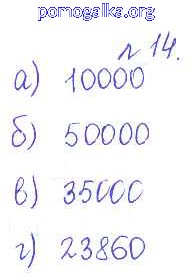 pomogalka.org
№ 14.
а) 10000
б) 50000
в) 35000
г) 23860